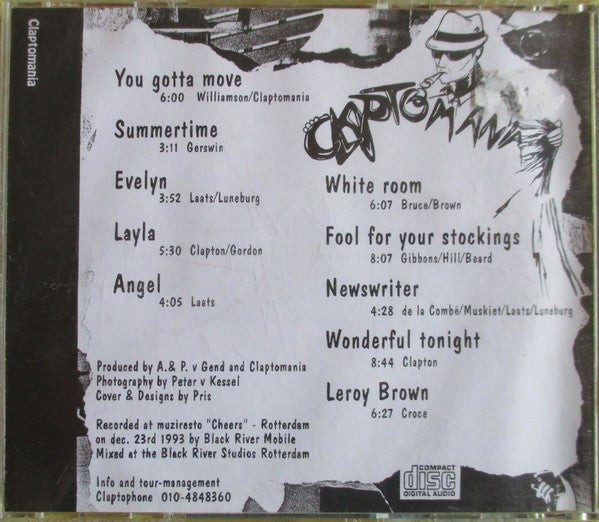 Claptomania
You gotta move
6:00 Williamson/Claptomania
Summertime
3:11 Gerswin
Evelyn
3:52 Laats/Luneburg
Layla
5:30 Clapton/Gordon
Angel
4:05 Laats
CLAPTOMANIA
White room
6:07 Bruce/Brown
Fool for your stockings
8:07 Gibbons/Hill/Beard
Newswriter
4:28 de la Combé/Muskiet/Laats/Luneburg
Wonderful tonight
8:44 Clapton
Leroy Brown
6:27 Croce
Produced by A.& P. v Gend and Claptomania
Photography by Peter v Kessel
Cover & Designs by Pris
Recorded at muziresto "Cheers" - Rotterdam
on dec. 23rd 1993 by Black River Mobile
Mixed at the Black River Studios Rotterdam
Info and tour-management
Claptophone 010-4848360
COMPACT
disc
DIGITAL AUDIO